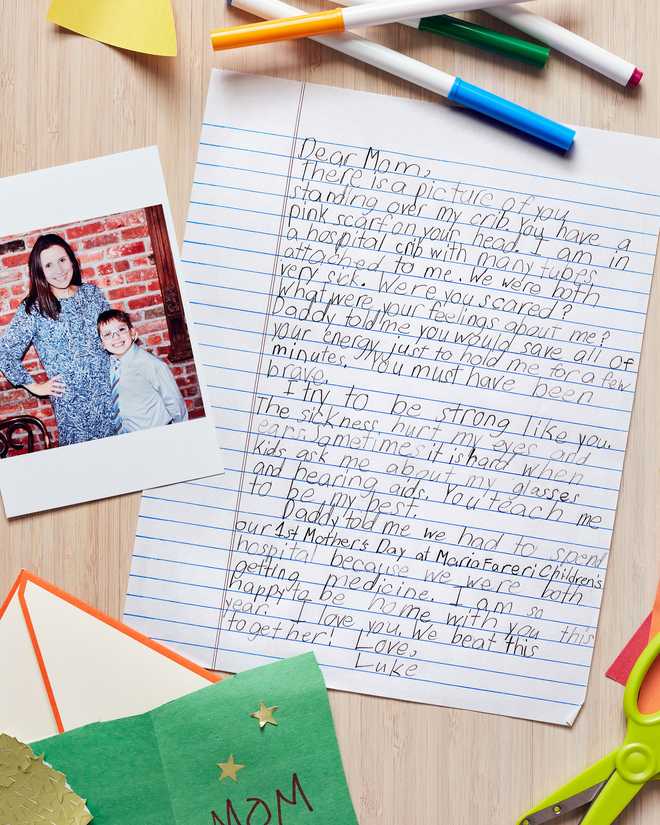 Dear Mom,
There is a picture of you
standing over my crib. You have a
pink scarf on your head. I am in
a hospital crib with many tubes
attached to me. We were both
very sick. Were you scared?
What were your feelings about me?
Daddy told me you would save all of
your energy just to hold me for a few
minutes. You must have been
brave.
I try to be strong like you.
The sickness hurt my eyes and
ears. Sometimes it is hard when
kids ask me about my glasses
and hearing aids. You teach me
to be my best.
Daddy told me we had to spend
our 1st Mother's Day at Maria Fareri Children's
hospital because we were both
getting medicine. I am so
happy to be home with you this
year. I love you. We beat this
together! Love,
Luke
MOM